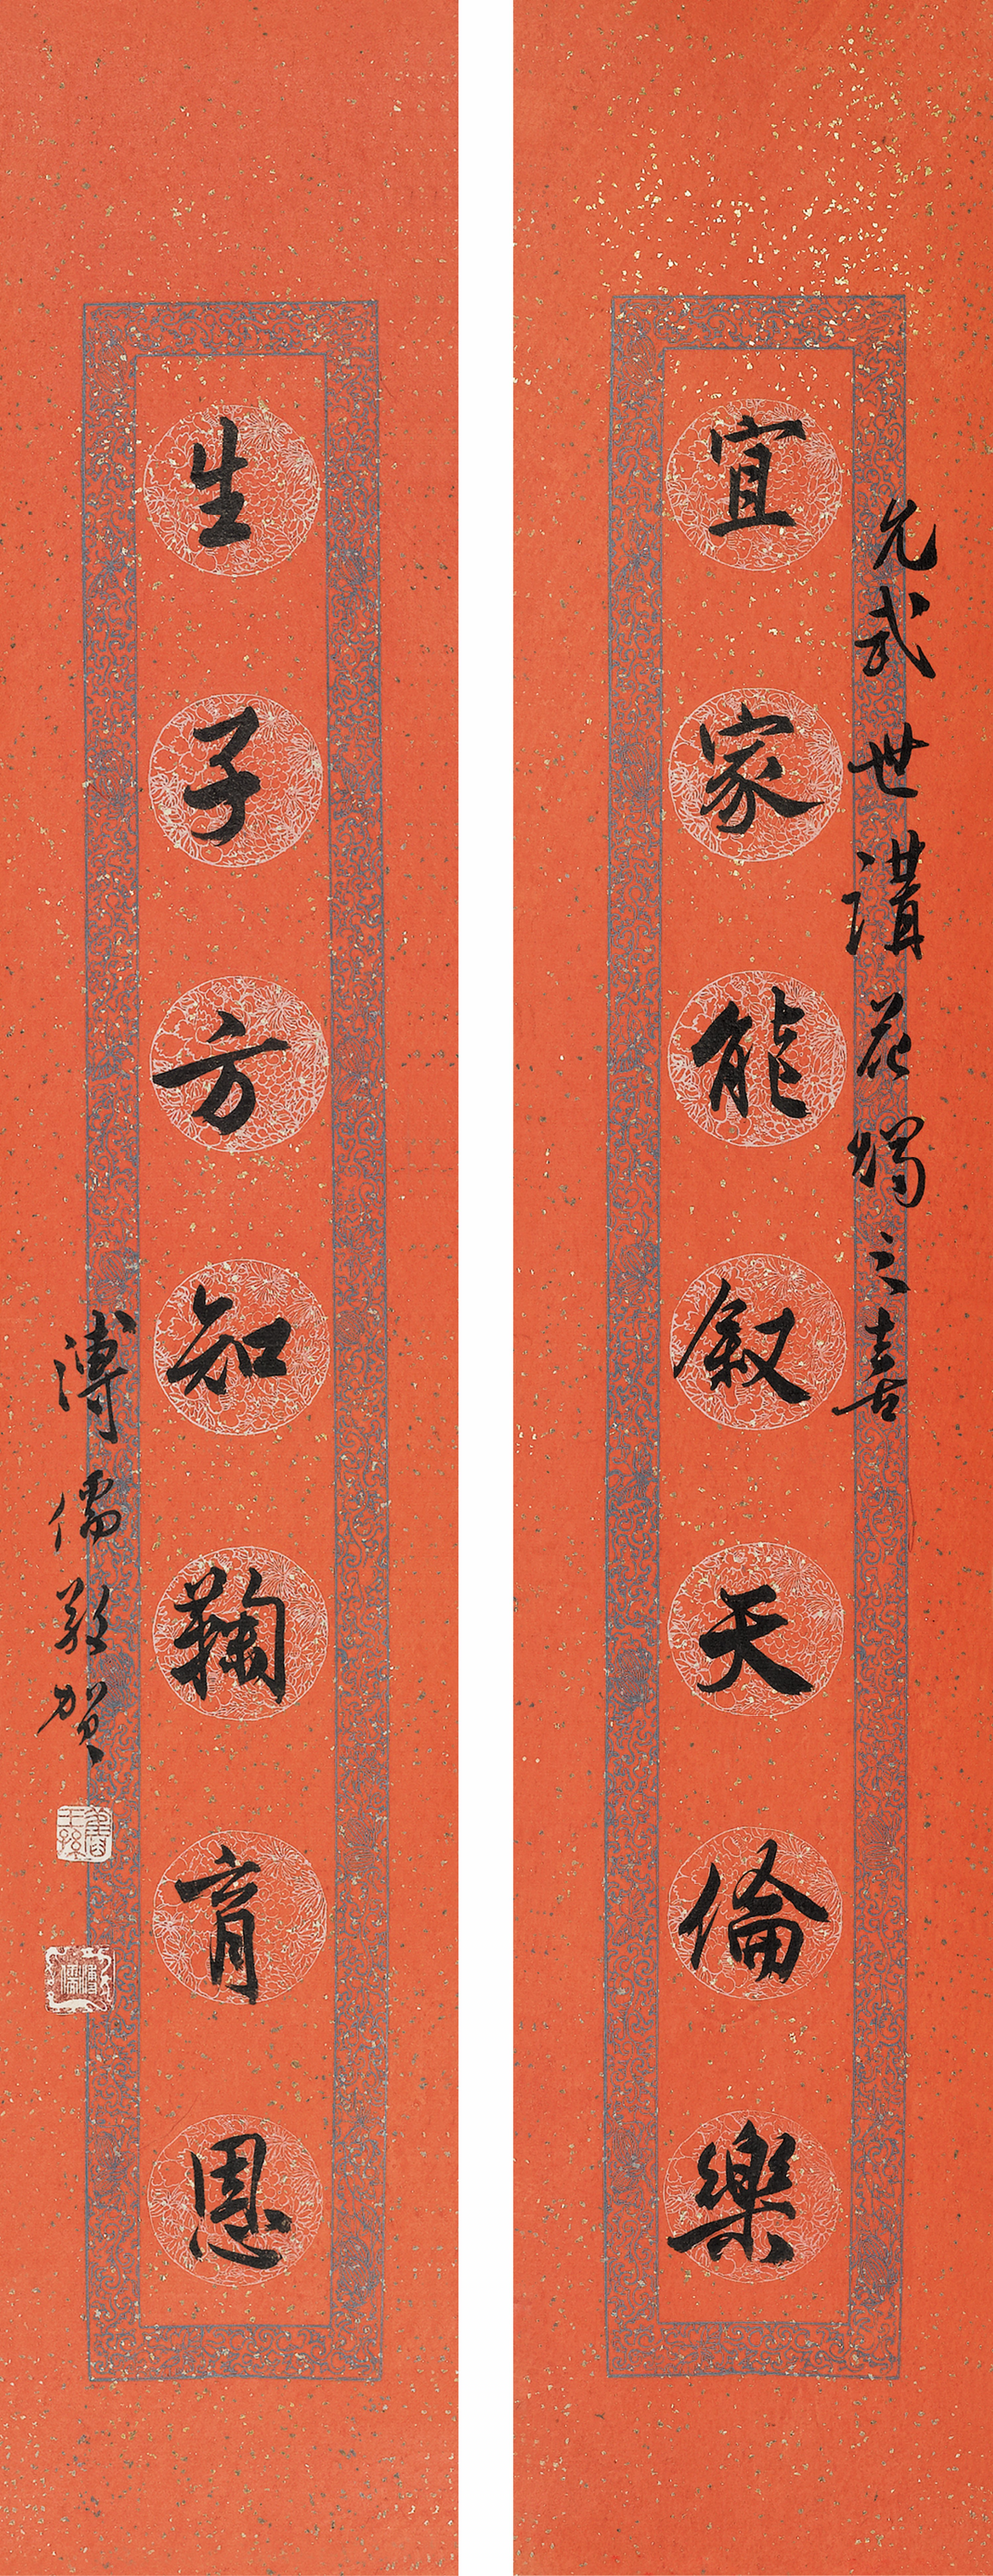 允武世講花燭之喜
宜家能敘天倫樂
生子方知鞠育恩
溥儒敬賀
舊王孫
溥儒